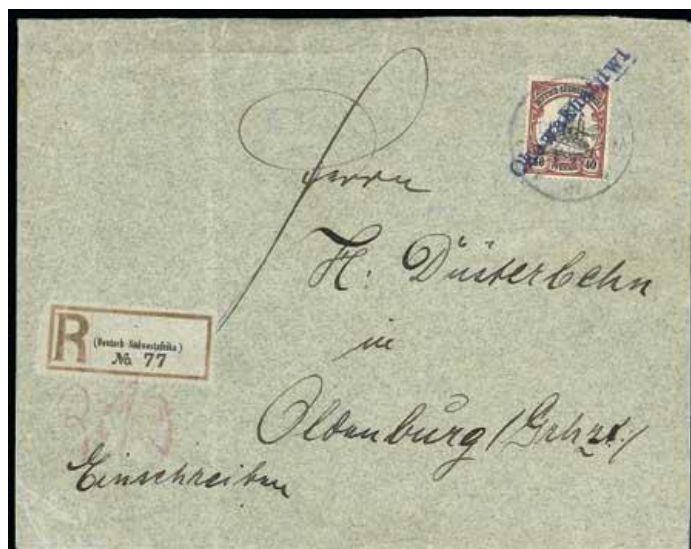 40 40
PFENNIG
Herrn
H. Düsterbehn
in
Oldenburg /Grhzt:/
R (Deutsch-Südwestafrika)
No. 77
Einschreiben